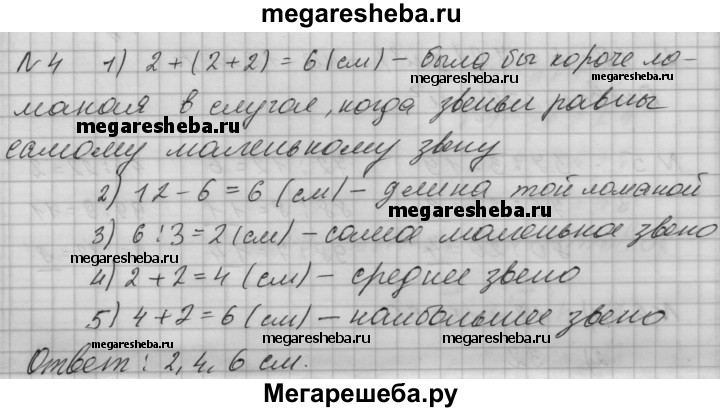 megaresheba.ru
N 4 1) 2 + (2 + 2) = 6 (см) – была бы короче ло-
megaresheba.ru megaresheba.ru
маная в случае, когда звенья равны
megaresheba.ru megaresheba.ru
самому маленькому звену
2) 12 – 6 = 6 (см) – длина той ломаной
megaresheba.ru
3) 6 : 3 = 2 (см) – самое маленькое звено
megaresheba.ru
4) 2 + 2 = 4 (см) – среднее звено
5) 4 + 2 = 6 (см) – наибольшее звено
megaresheba.ru megaresheba.ru
Ответ: 2, 4, 6 см.
Мегарешеба.ру